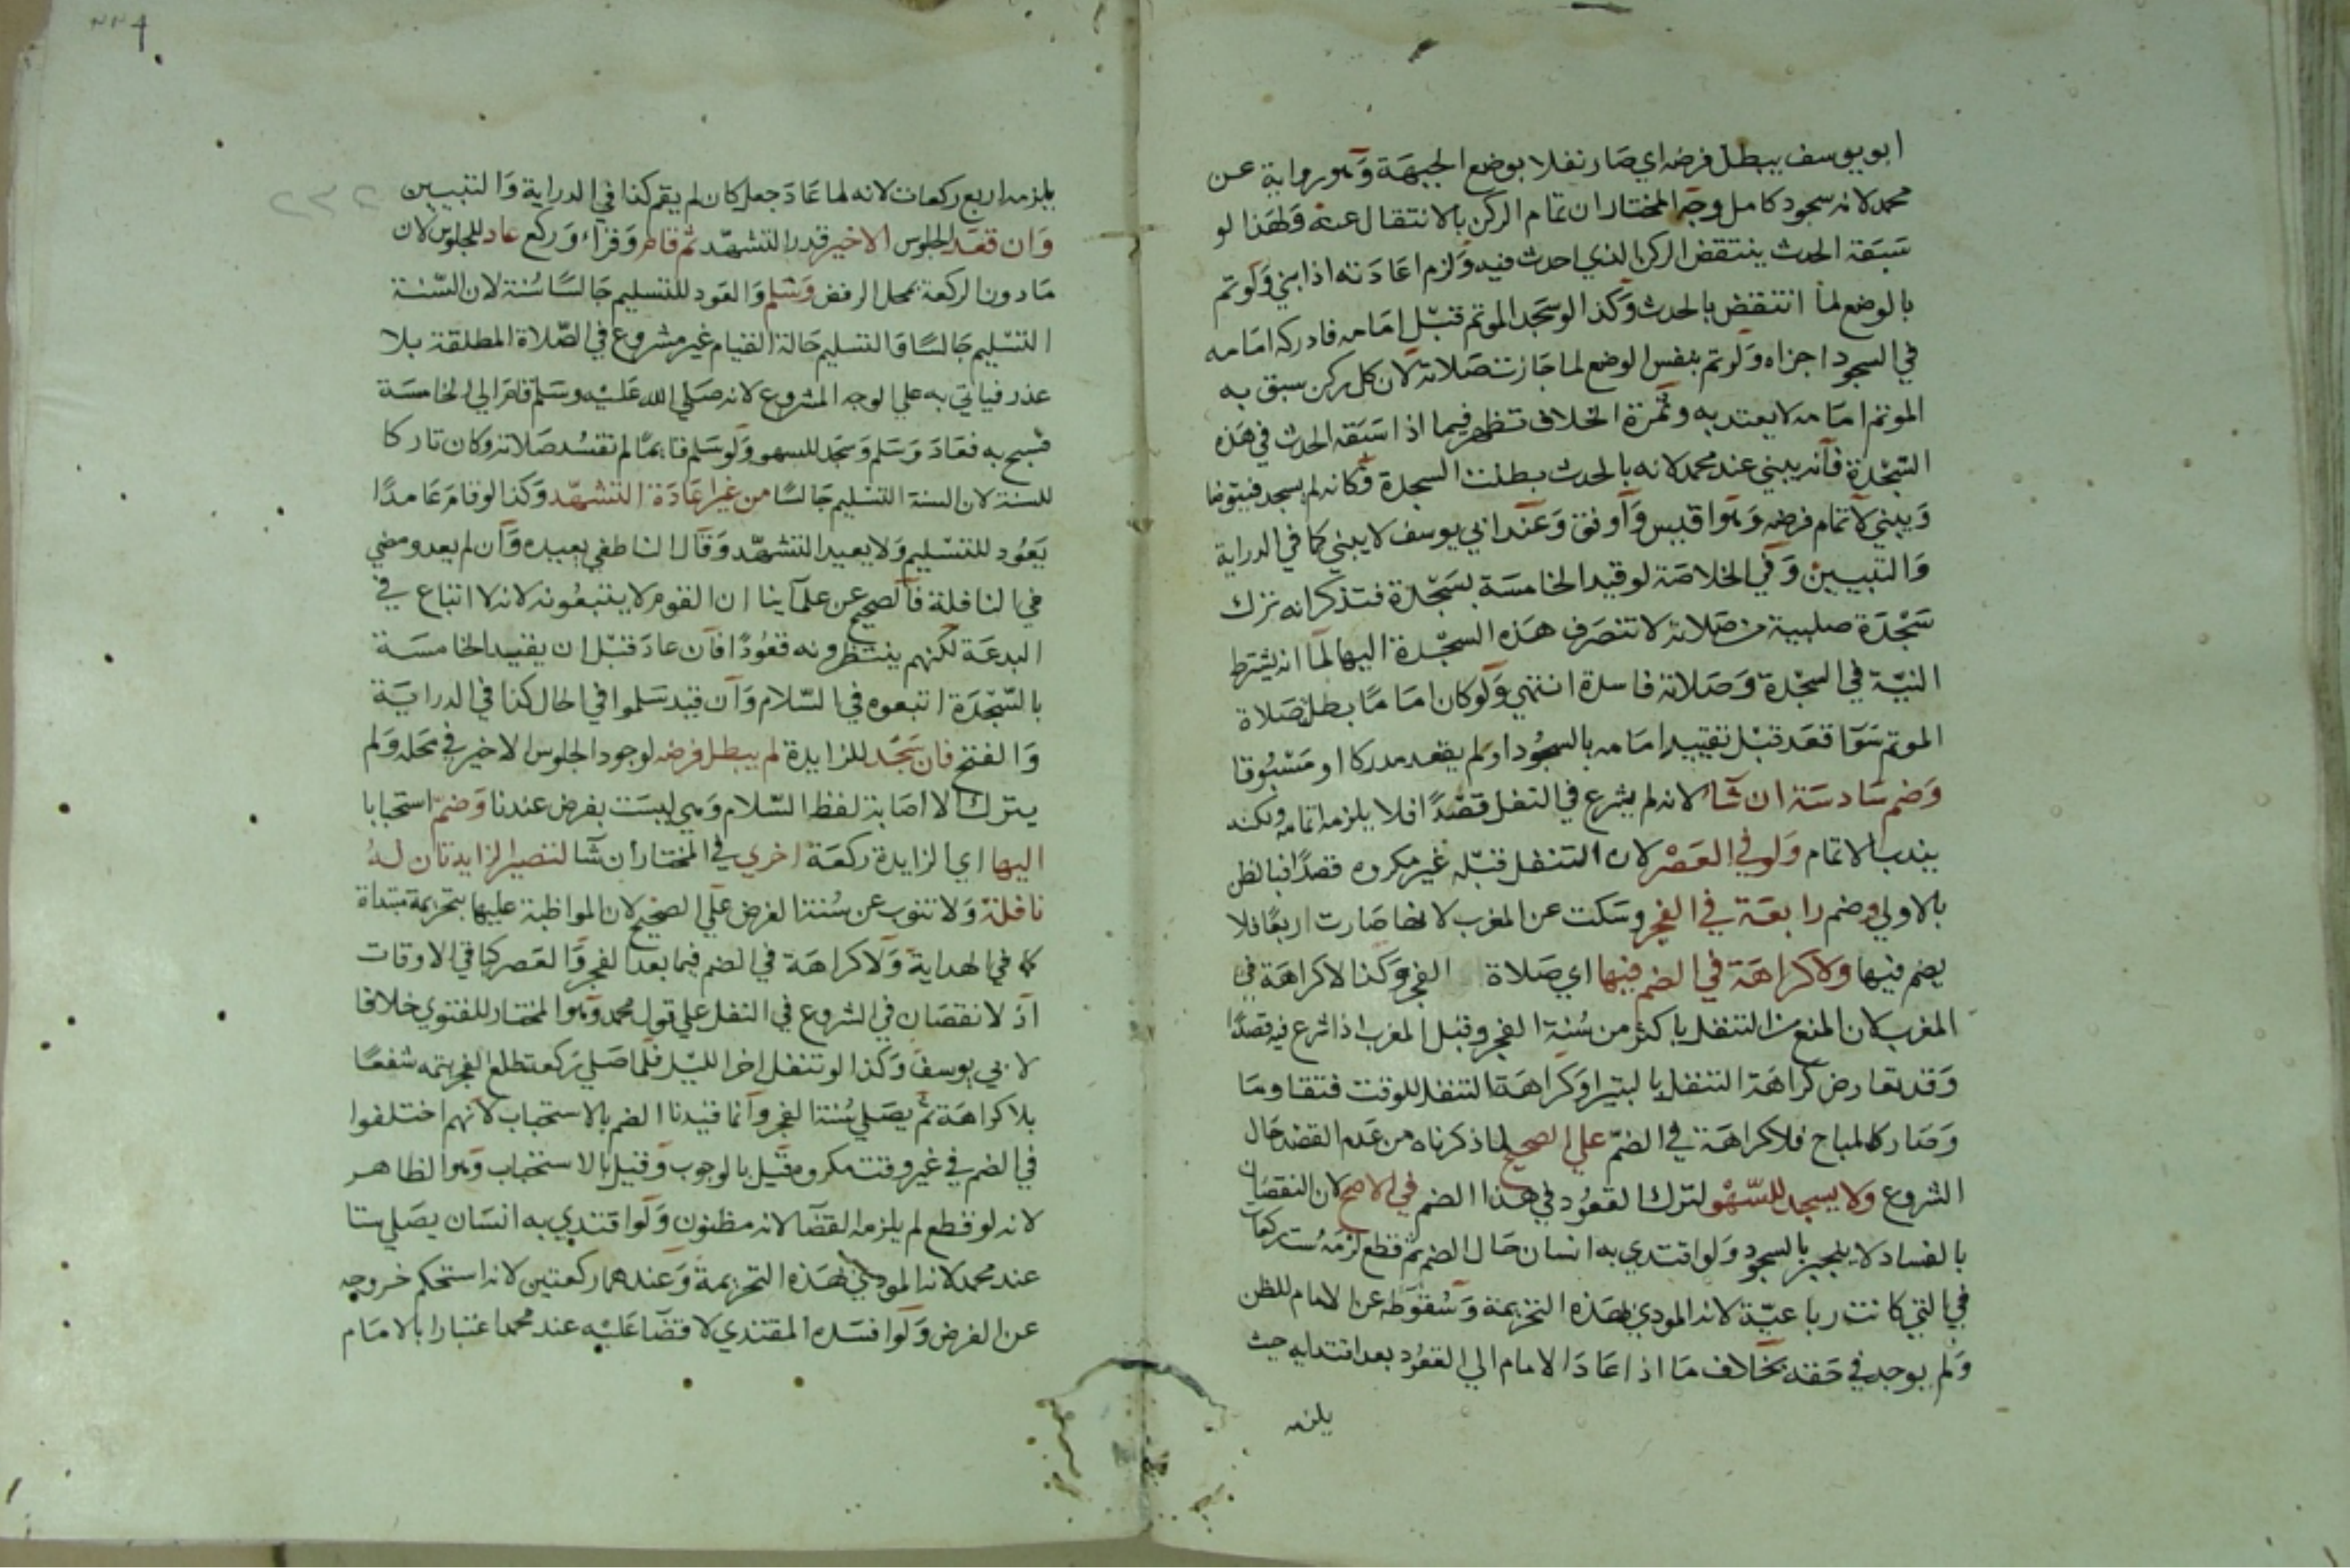 ابو يوسف يبطل فرضه اي صار نفلا بوضع الجبهة وهو رواية عن
محمد لانه سجود كامل وجه المختار ان تمام الركن بالانتقال عنه ولهذا لو
سبقه الحدث ينتقض الركن الذي احدث فيه ولزم اعادته اذا بني ولو تم
بالوضع لما انتقض بالحدث وكذا لو سجد الموتم قبل امامه فادركه امامه
في السجود اجزاه ولو تم بنفس الوضع لما جازت صلاته لان كل ركن سبق به
الموتم امامه لا يعتد به وثمرة الخلاف تظهر فيما اذا سبقه الحدث في هذه
السجدة فانه يبني عند محمد لانه بالحدث بطلت السجدة فكانه لم يسجد فيتوضا
ويبني لاتمام فرضه وهو اقيس واوفق وعند ابي يوسف لا يبني كما في الدراية
والتبيين وفي الخلاصة لو قيد الخامسة بسجدة فتذكر انه ترك
سجدة صلبية من صلاته لا تنصرف هذه السجدة اليها لما انه يشترط
النية في السجدة وصلاته فاسدة انتهي ولو كان اماما بطل صلاة
الموتم سوا قعد قبل تقييد امامه بالسجود او لم يقعد مدركا او مسبوقا
وضم سادسة ان شا لانه لم يشرع في النفل قصدا فلا يلزمه اتمامه ولكنه
يندب الاتمام ولو في العصر لان التنفل قبله غير مكروه قصدا فبالظن
بالاولي وضم رابعة في الفجر وسكت عن المغرب لانها صارت اربعا فلا
يضم فيها ولا كراهة في الضم فيها اي صلاة الفجر وكذا لا كراهة في
المغرب لان المنع من التنفل باكثر من سنة الفجر وقبل المغرب اذا شرع فيه قصدا
وقد تعارض كراهة التنفل بالبتيرا وكراهة التنفل للوقت فتقاوما
وصار كالمباح فلا كراهة في الضم علي الصحيح لما ذكرناه من عدم القصد حال
الشروع ولا يسجد للسهو لترك القعود في هذا الضم في الاصح لان النقصان
بالفساد لا ينجبر بالسجود ولو اقتدي به انسان حال الضم ثم قطع لزمه ست ركعات
في التي كانت رباعية لانه المودي بهذه التحريمة وسقوطه عن الامام للظن
ولم يوجد في حقه بخلاف ما اذا عاد الامام الي القعود بعد اقتدايه حيث
يلزمه
يلزمه اربع ركعات لانه لما عاد جعل كان لم يقم كذا في الدراية والتبيين
٢٣٢
وان قعد الجلوس الاخير قدر التشهد ثم قام وقراء وركع عاد للجلوس لان
ما دون الركعة بمحل الرفض وسلم والعود للتسليم جالسا سنة لان السنة
التسليم جالسا والتسليم حالة القيام غير مشروع في الصلاة المطلقة بلا
عذر فياتي به علي الوجه المشروع لانه صلي الله عليه وسلم قام الي الخامسة
فسبح به فعاد وسلم وسجد للسهو ولو سلم قايما لم تفسد صلاته وكان تاركا
للسنة لان السنة التسليم جالسا من غير اعادة التشهد وكذا لو قام عامدا
يعود للتسليم ولا يعيد التشهد وقال الناطفي يعيده وان لم يعد ومضي
في النافلة فالصحيح عن علماينا ان القوم لا يتبعونه لانه لا اتباع في
البدعة لكنهم ينتظرونه قعودا فان عاد قبل ان يقيد الخامسة
بالسجدة اتبعوه في السلام وان قيد سلموا في الحال كذا في الدراية
والفتح فان سجد للزايدة لم يبطل فرضه لوجود الجلوس الاخير في محله ولم
يترك الا اصابة لفظ السلام وهي ليست بفرض عندنا وضم استحبابا
اليها اي الزايدة ركعة اخري في المختار ان شا لتصير الزايدتان له
نافلة ولا تنوب عن سنة الفرض علي الصحيح لان المواظبة عليها بتحريمة مبتداة
كما في الهداية ولا كراهة في الضم فيما بعد الفجر والعصر كباقي الاوقات
اذ لا نقصان في الشروع في النفل علي قول محمد وهو المختار للفتوي خلافا
لابي يوسف وكذا لو تنفل اخر الليل فلما صلي ركعة طلع الفجر يتمه شفعا
بلا كراهة ثم يصلي سنة الفجر وانما قيدنا الضم بالاستحباب لانهم اختلفوا
في الضم في غير وقت مكروه قيل بالوجوب وقيل بالاستحباب وهو الظاهر
لانه لو قطع لم يلزمه القضا لانه مظنون ولو اقتدي به انسان يصلي ستا
عند محمد لانه المودي بهذه التحريمة وعندهما ركعتين لانه استحكم خروجه
عن الفرض ولو افسده المقتدي لا قضا عليه عند محمد اعتبارا بالامام